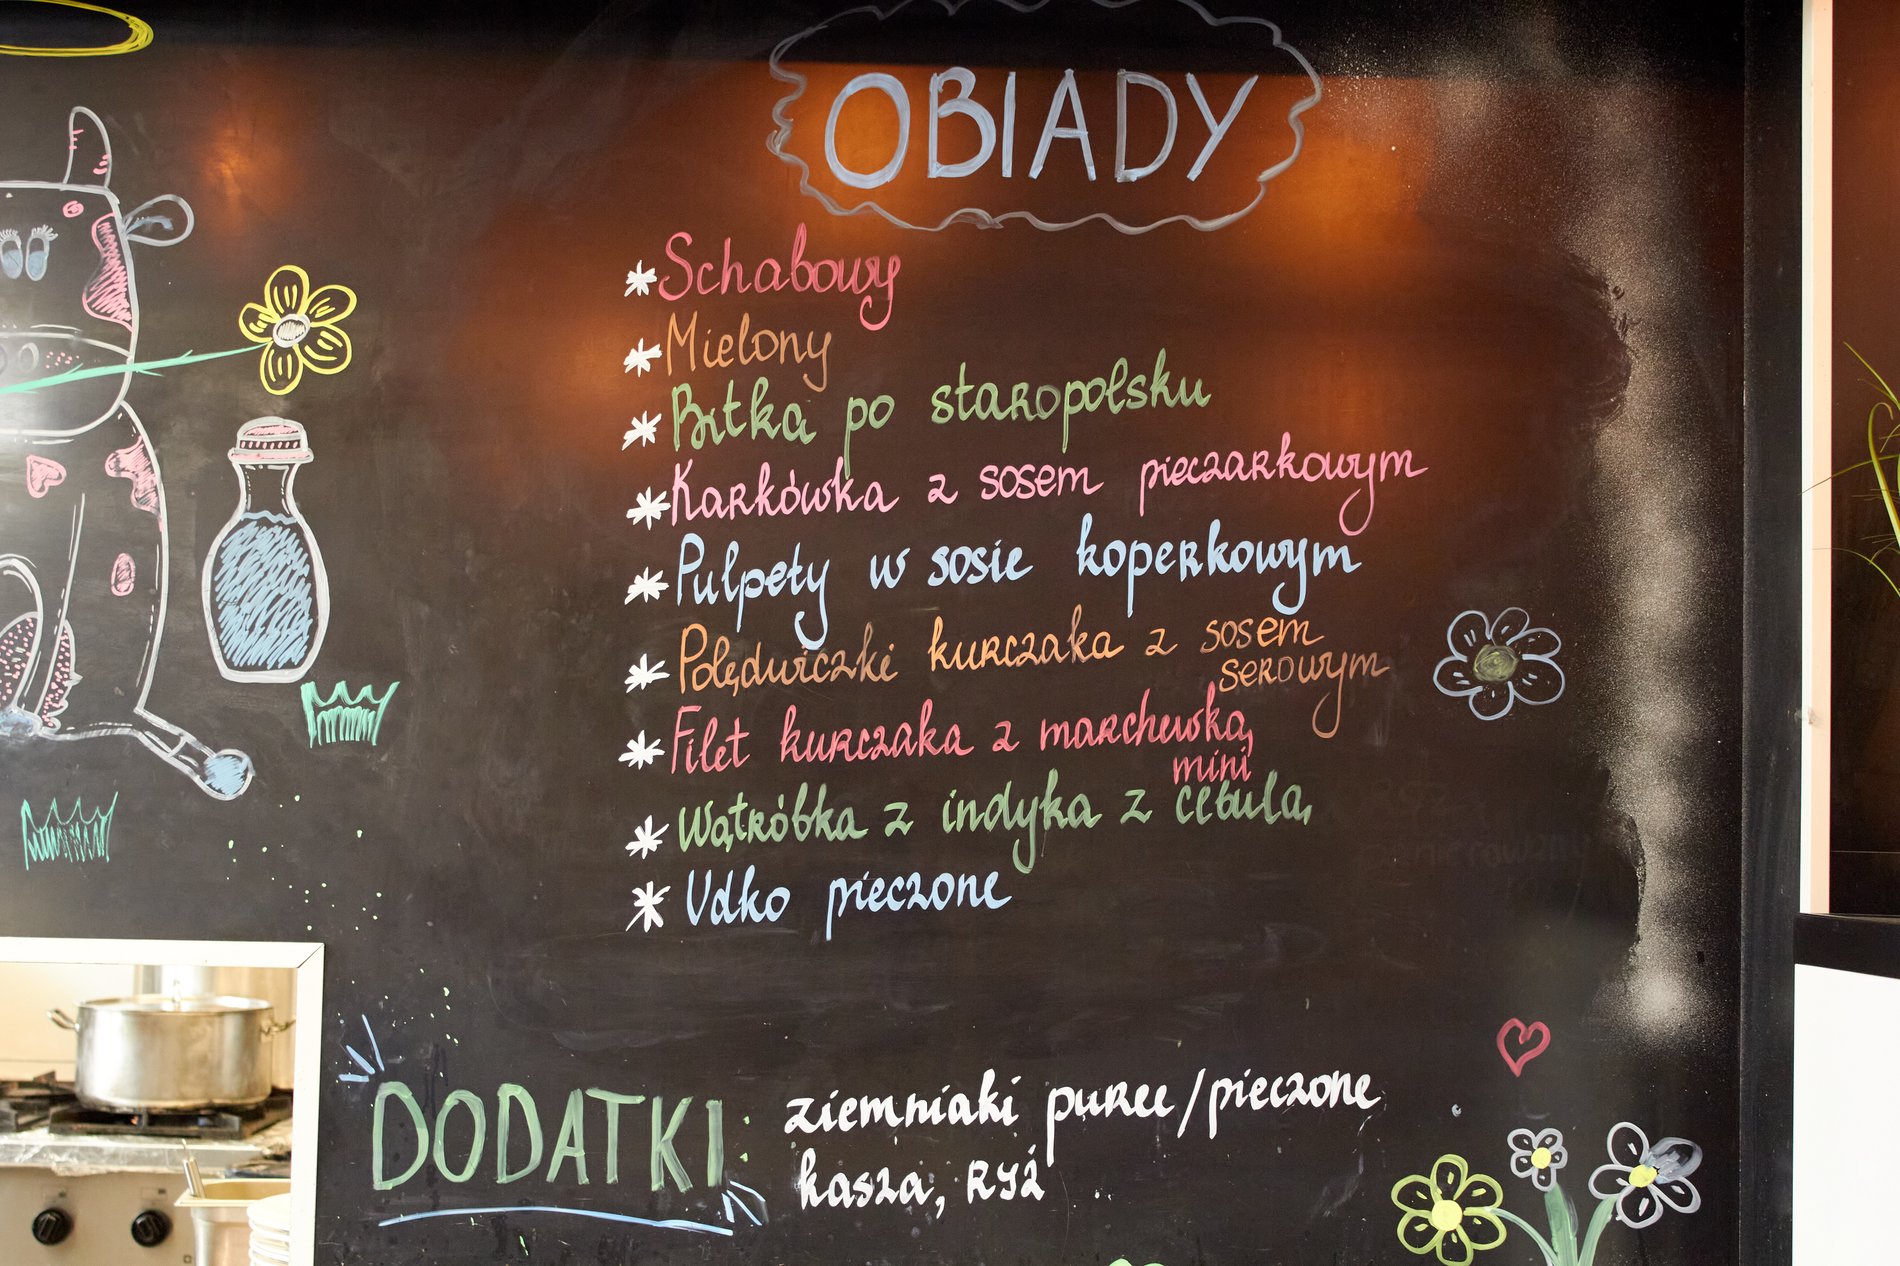 OBIADY
* Schabowy
* Mielony
* Bitka po staropolsku
* Karkówka z sosem pieczarkowym
* Pulpety w sosie koperkowym
* Polędwiczki kurczaka z sosem
serowym
* Filet kurczaka z marchewką
mini
* Wątróbka z indyka z cebulą
* Udko pieczone
DODATKI: ziemniaki puree/pieczone
kasza, RYŻ